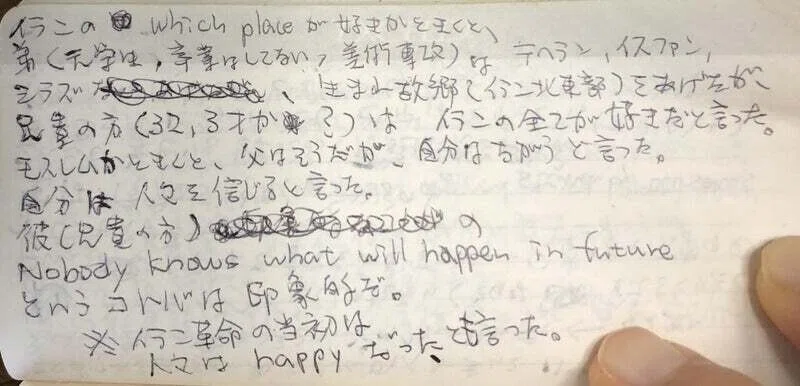 イランの which place が好きかときくと、
弟(大学は,卒業はしてない,美術専攻)は テヘラン,イスファン,
シラズ 、生まれ故郷(イラン北東部)をあげたが、
兄貴の方(32,3才か?)は イランの全てが好きだと言った。
モスレムかときくと、父はそうだが、自分はちがうと言った。
自分は 人々を信じると言った。
彼(兄貴の方) の
Nobody knows what will happen in future
というコトバは 印象的だ。
※ イラン革命の当初は
人々は happy だった、とも言った。